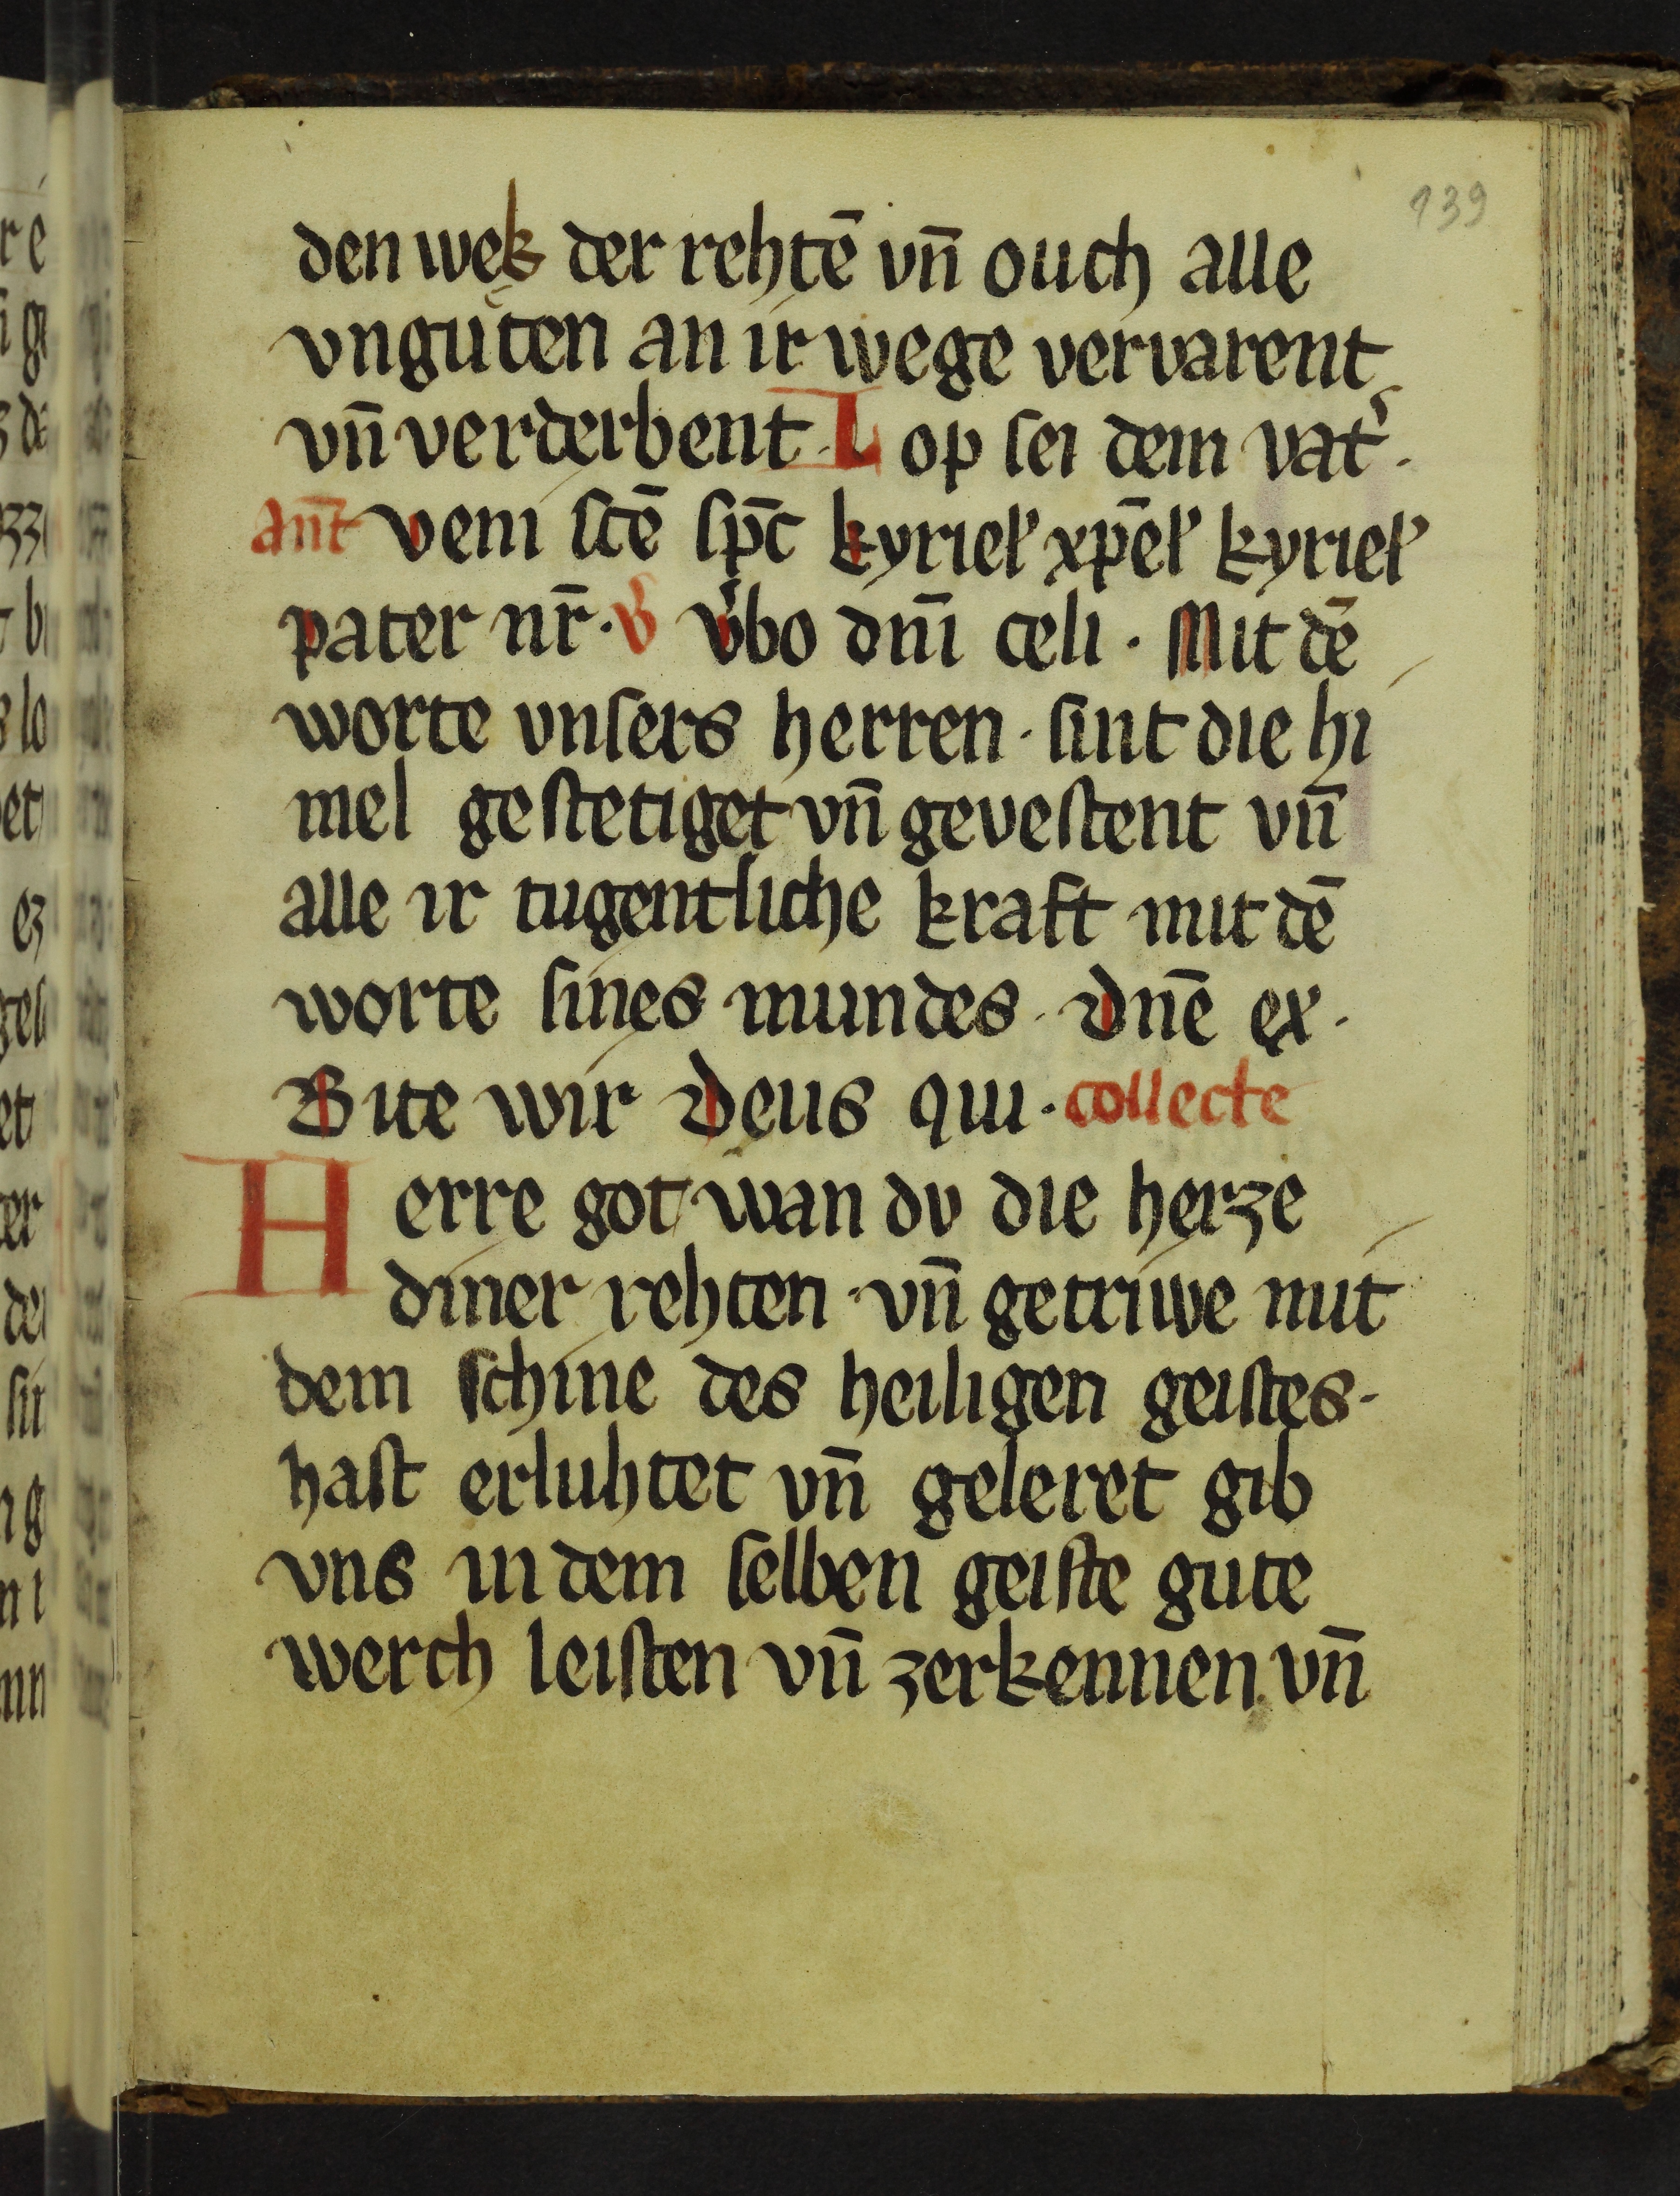 139
den wek der rehtē vn̄ ouch alle
vngůten an ir wege vervarent
vn̄ verderbent. Lop ſei dem vat͛.
an̄t veni ſcē ſpc̄ kyriel' xp̄el' kyriel'
pater nr̄. V v͛bo dn̄i celi. Mit dē
worte vnſers herren. ſint die hi
mel geſtetiget vn̄ geveſtent vn̄
alle ir tugentliche kraft mit dē
worte ſines mundes. Dn̄e ex.
Bite wir Deus qui. collecte
Herre got wan dv die herze
diner rehten. vn̄ getriwe mit
dem ſchine des heiligen geiſtes.
haſt erluhtet vn̄ geleret gib
vns in dem ſelben geiſte gute
werch leiſten vn̄ zerkennen vn̄